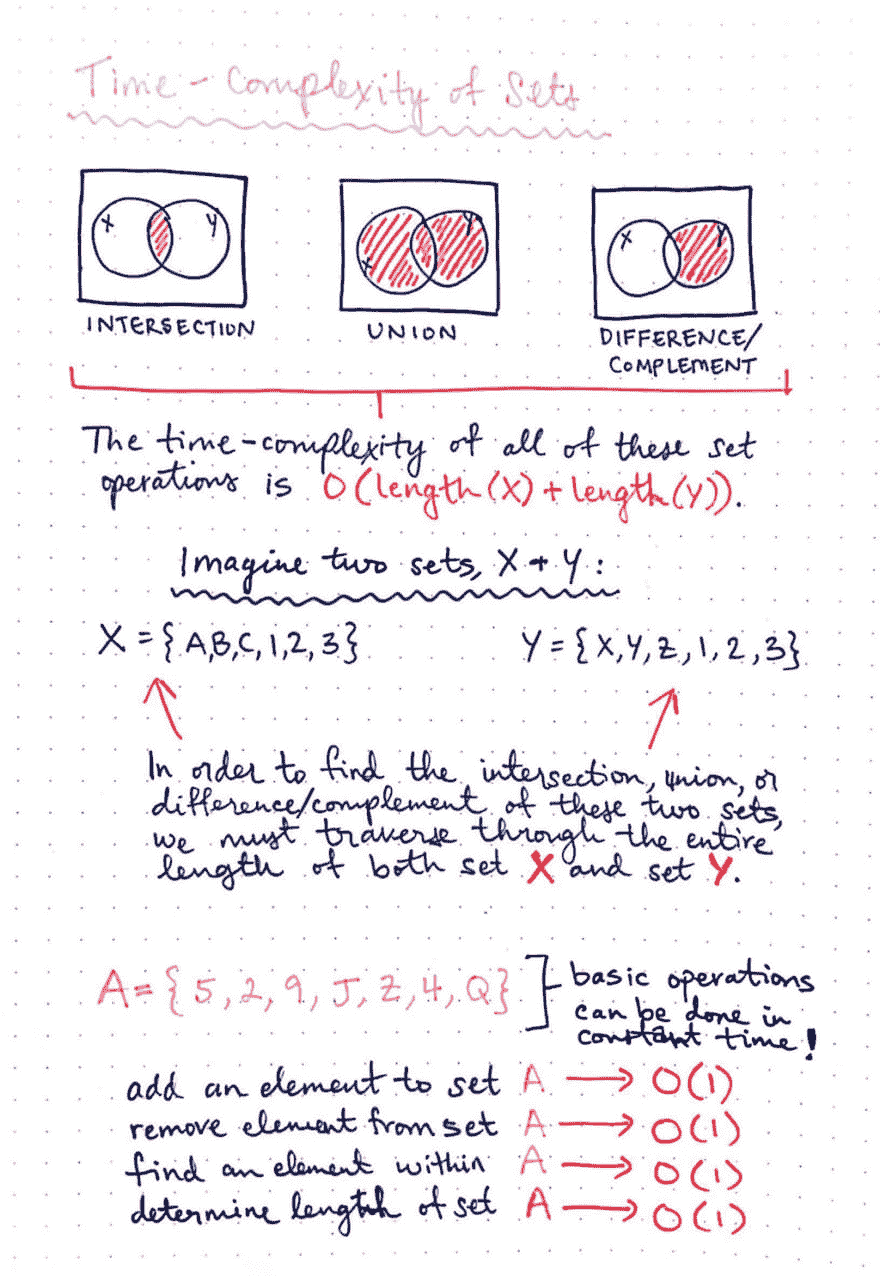 Time-Complexity of Sets
X Y
X Y
X Y
INTERSECTION
UNION
DIFFERENCE/
COMPLEMENT
The time-complexity of all of these set
operations is O(length(X)+length(Y)).
Imagine two sets, X + Y:
X = {A,B,C,1,2,3}
Y = {X,Y,Z,1,2,3}
In order to find the intersection, union, or
difference/complement of these two sets,
we must traverse through the entire
length of both set X and set Y.
A = {5,2,9,J,Z,4,Q}
basic operations
can be done in
constant time!
add an element to set A → O(1)
remove element from set A → O(1)
find an element within A → O(1)
determine length of set A → O(1)